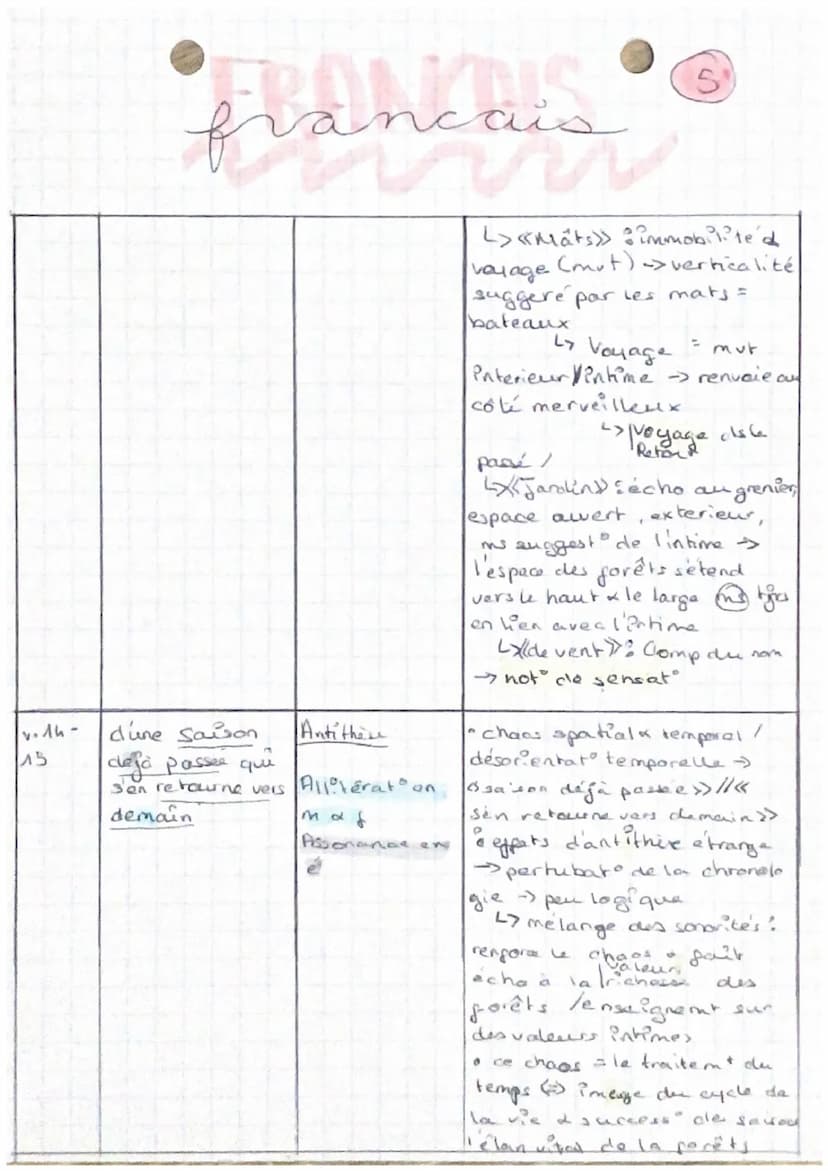 FRANCAIS
francais
5
↳ «Mâts» : immobilité d
voyage (mvt) → verticalité
suggeré par les mats =
bateaux
↳ Voyage = mvt
interieur/intime → renvoie au
côté merveilleux
↳ Voyage ds le
Retour
passé /
↳ «Jardin» : écho au grenier,
espace ouvert, exterieur,
ms suggest° de l'intime →
l'espace des forêts s'étend
vers le haut & le large ms tjrs
en lien avec l'intime
↳ «de vent» : Comp du nom
→ not° de sensat°
v.14-
15
d'une saison
déjà passée qui
s'en retourne vers
demain
Antithèse
Allitération
Assonance en
é
• chaos spatial & temporal /
désorientat° temporelle →
saison déjà passée» // «
s'en retourne vers demain»
: effets d'antithèse étrange
→ pertubat° de la chronolo
gie → peu logique
↳ mélange des sonorités :
renforce le chaos & fait
valeur
écho à la richesse des
forêts /enseignemt sur
des valeurs intimes
• ce chaos = le traitemt du
temps (=) image du cycle de
la vie & success° de saison
l'élan vital de la forêts